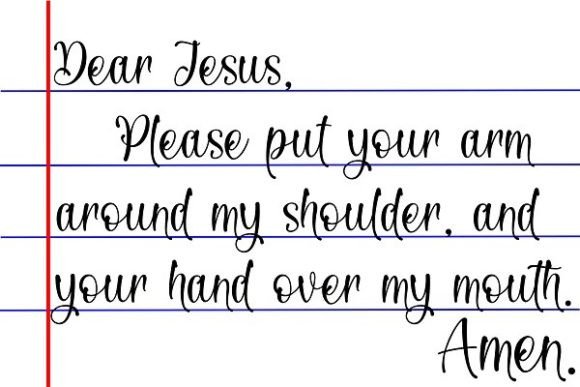 Dear Jesus,
Please put your arm
around my shoulder, and
your hand over my mouth.
Amen.